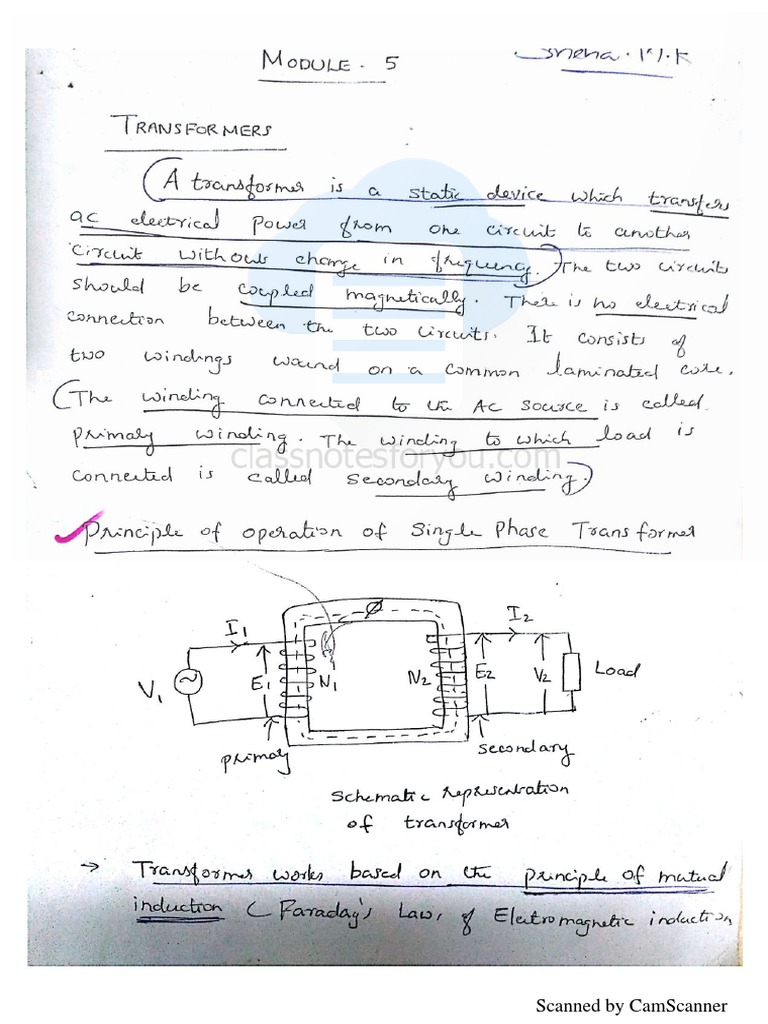 MODULE - 5
Sneha. M.K
TRANSFORMERS
A transformer is a static device which transfers
ac electrical power from one circuit to another
circuit without change in frequency. The two circuits
should be coupled magnetically. There is no electrical
connection between the two circuits. It consists of
two windings wound on a common laminated core.
(The winding connected to the AC source is called
primary winding. The winding to which load is
classnotesforyou.com
connected is called secondary winding.)
Principle of operation of Single Phase Transformer
I1
I2
V1
E1
N1
N2
E2
V2
Load
ø
primary
secondary
Schematic representation
of transformer
→ Transformer works based on the principle of mutual
induction (Faraday's Laws of Electromagnetic induction
Scanned by CamScanner